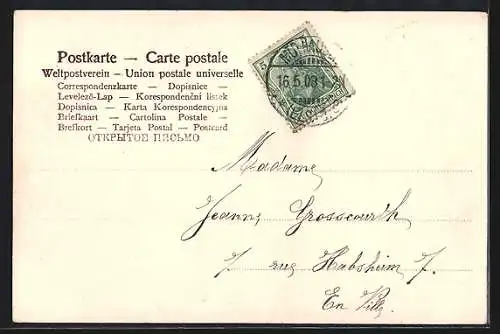 Postkarte — Carte postale
Weltpostverein – Union postale universelle
Correspondenzkarte — Dopisnice —
Levelező-Lap — Korespondenční lístek
Dopisnica — Karta Korespondencyjna
Briefkaart — Cartolina Postale —
Brefkort — Tarjeta Postal — Postcard
ОТКРЫТОЕ ПИСЬМО
5
16.5.03.1-2N
Madame
Jeanne Grosscourth
7 rue Habsheim 7.
En Ville.